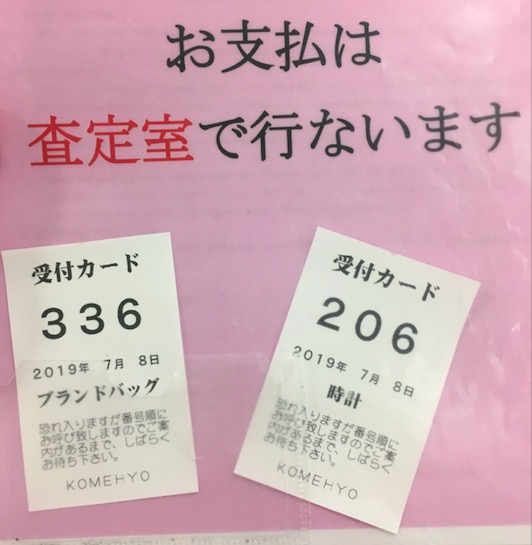 お支払は
査定室で行ないます
受付カード
336
2019年 7月 8日
ブランドバッグ
恐れ入りますが番号順に
お呼び致しますのでご案
内があるまで、しばらく
お待ち下さい。
KOMEHYO
受付カード
206
2019年 7月 8日
時計
恐れ入りますが番号順に
お呼び致しますのでご案
内があるまで、しばらく
お待ち下さい。
KOMEHYO